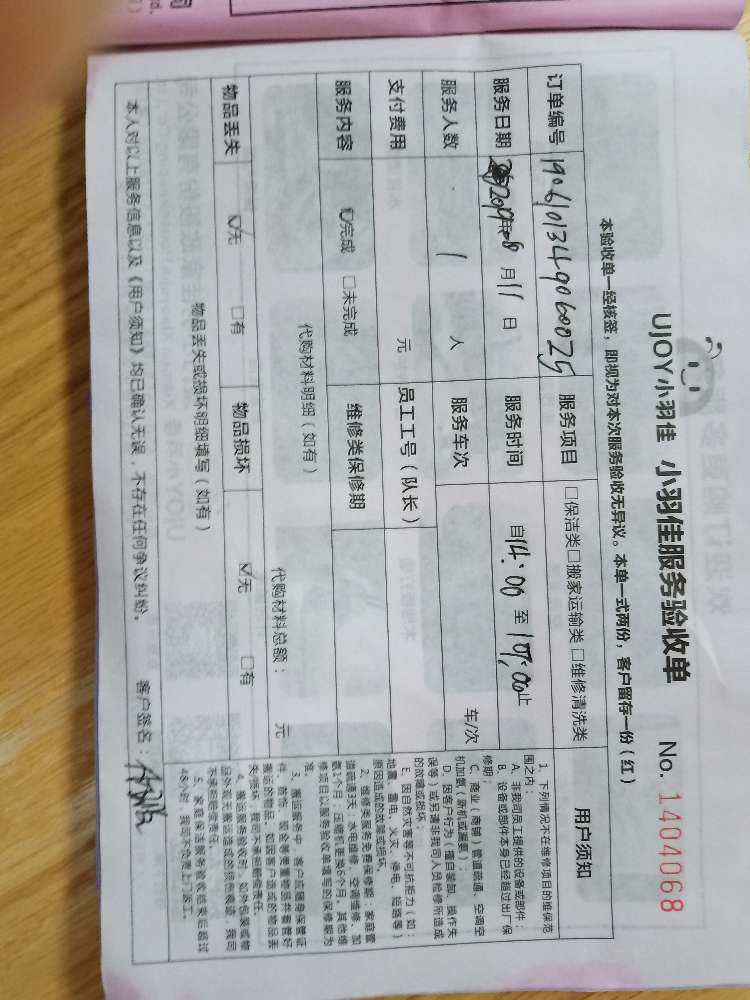 UJOY小羽佳 小羽佳服务验收单 No. 1404068
本验收单一经核签，即视为对本次服务验收无异议。本单一式两份，客户留存一份（红）
订单编号 1906101349060025 服务项目 □保洁类□搬家运输类□维修清洗类
服务日期 2019年8月11日 服务时间 自14:00至18:00止
服务人数 1 人 服务车次 车/次
支付费用 元 员工工号（队长）
服务内容 ☑完成 □未完成 维修类保修期
代购材料明细（如有）
代购材料总额： 元
物品丢失 ☑无 □有 物品损坏 ☑无 □有
物品丢失或损坏明细填写（如有）
本人对以上服务信息以及《用户须知》均已确认无误，不存在任何争议纠纷。
客户签名：
用户须知
1、下列情况不在维修项目的维保范
围之内：
A、非我司员工提供的设备或部件；
B、设备或部件本身已经超过出厂保
修期；
C、商业（商铺）管道疏通、空调空
机加氨（新机或漏氨）；
D、因客户行为（擅自装卸、操作失
误等）或另请非我司人员检修所造成
的故障或损坏；
E、因自然灾害等不可抗拒力（如：
地震、雷电、火灾、停电、短路等）
原因造成的故障或损坏。
2、维修类服务免费保修期：家庭管
道疏通5天；水电维修、空调维修、加
氨1个月；压缩机更换6个月。其他维
修项目以服务验收单填写的保修期为
准。
3、搬运服务中，客户应随身保管证
件、首饰、现金等贵重物品并看管好
搬运的物品，如因客户造成的物品丢
失/损坏，我司不承担赔偿责任。
4、搬运服务验收时，如外包装或物
品外观无搬运造成的损伤痕迹，我司
不承担赔偿责任。
5、家庭保洁服务验收结束后超过
48小时，我司不负责上门返工。